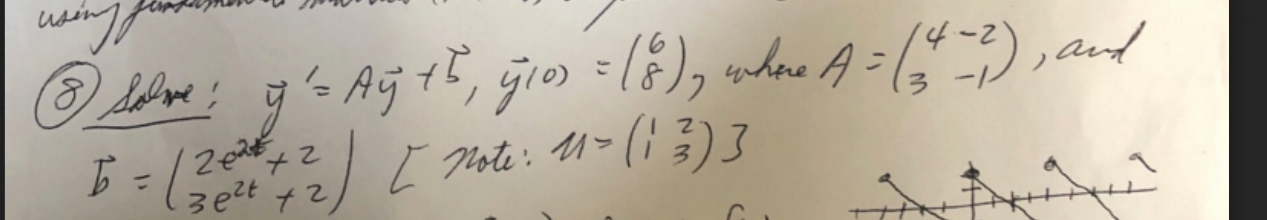 using
⑧ Solve: y⃗' = Ay⃗ + b⃗, y⃗(0) = (6 8), where A = (4 -2 3 -1), and
b⃗ = (2e^2t + 2 3e^2t + 2) [Note: M = (1 2 1 3)]